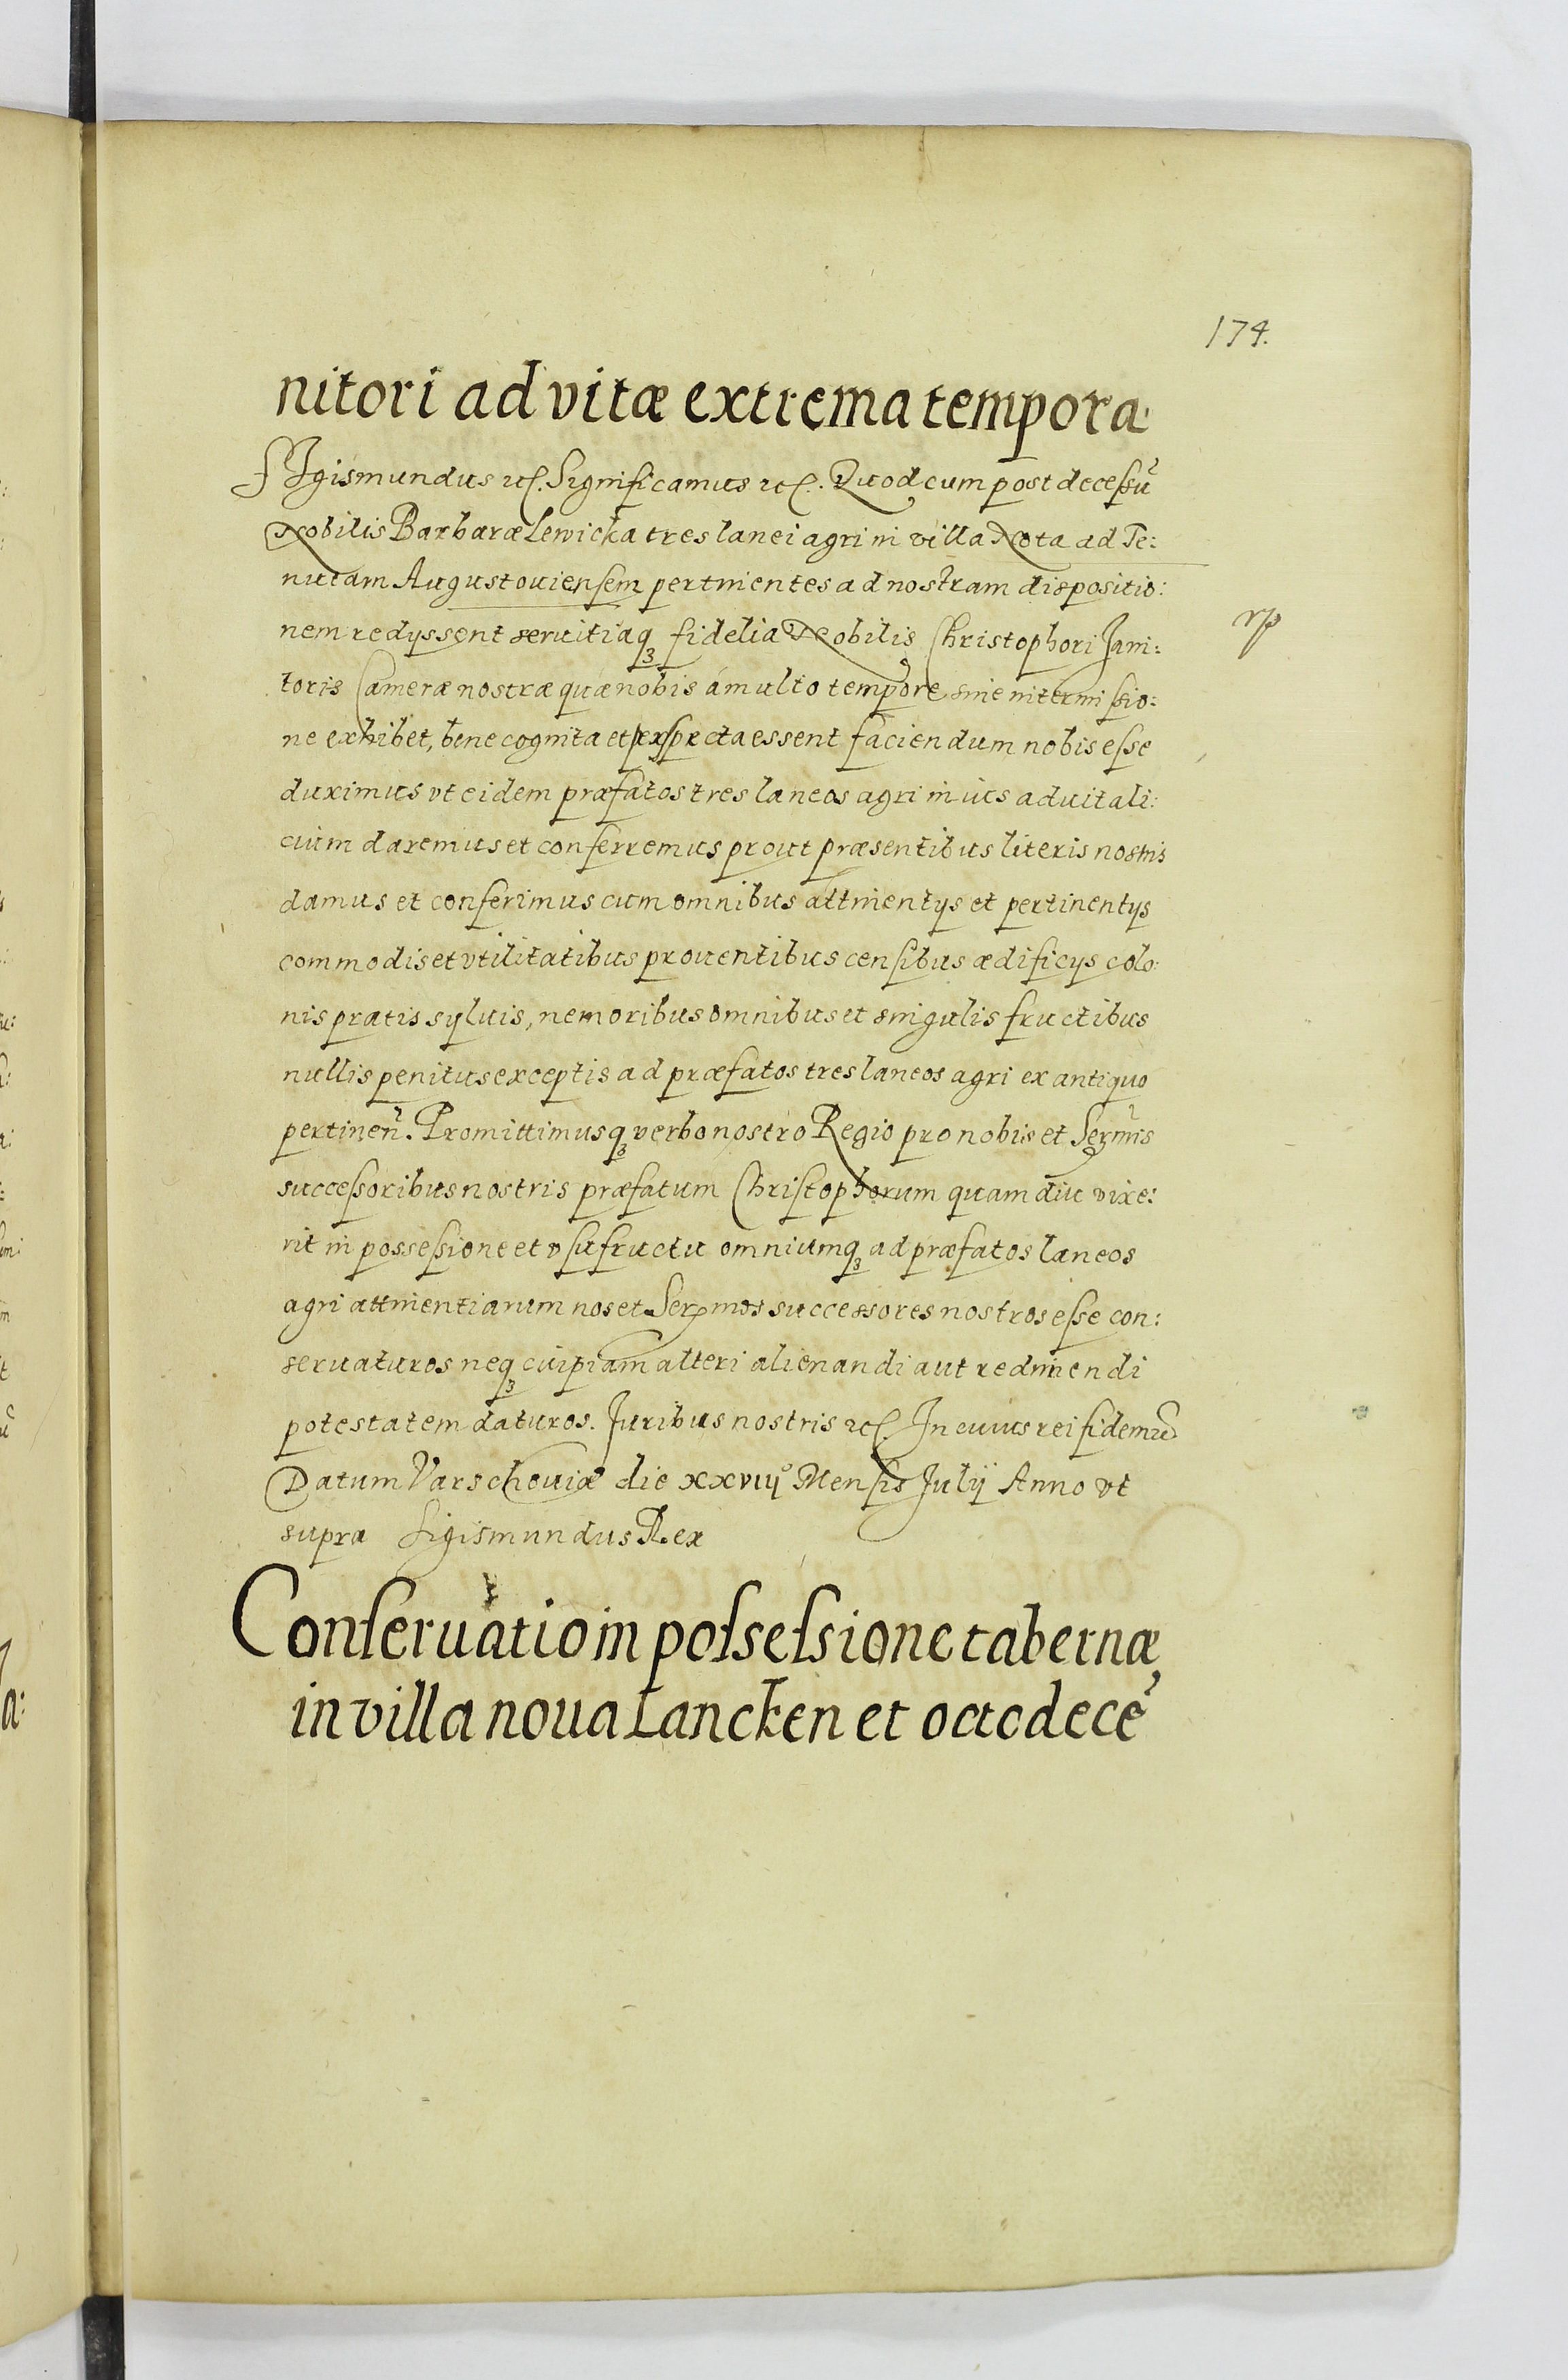 174.
nitori ad vitæ extrema tempora:
SIgismundus etc. Significamus etc. Quod cum post decessũ
Nobilis Barbaræ Lewicka tres lanei agri in villa Nota ad Te:
nutam Augustouiensem pertinentes ad nostram dispositio:
nem redyssent seruitiaq₃ fidelia Nobilis Christophori Jani:
toris Cameræ nostræ quæ nobis á multo tempore sine intermissio:
ne exhibet, bene cognita et perspecta essent faciendum nobis esse
duximus vt eidem præfatos tres laneos agri in ius aduitali:
cium daremus et conferremus prout præsentibus literis nostris
damus et conferimus cum omnibus attinentys et pertinentys
commodis et vtilitatibus prouentibus censibus ædificys colo:
nis pratis syluis, nemoribus omnibus et singulis fructibus
nullis penitus exceptis ad præfatos tres laneos agri ex antiquo
pertineñ. Promittimusq₃ verbo nostro Regio pro nobis et Serm̃is
successoribus nostris præfatum Christophorum quam diu vixe:
rit in possessione et vsufructu omniumq₃ ad præfatos laneos
agri attinentiarum nos et Sermos successores nostros esse con:
seruaturos neq₃ cuipiam alteri alienandi aut redimendi
potestatem daturos. Juribus nostris etc. In cuius rei fidem etc
Datum Varschouiæ die xxviij° Mensis Julij Anno vt
supra Sigismundus Rex
Conseruatio in possessione tabernæ
in villa noua Lancken et octodecẽ